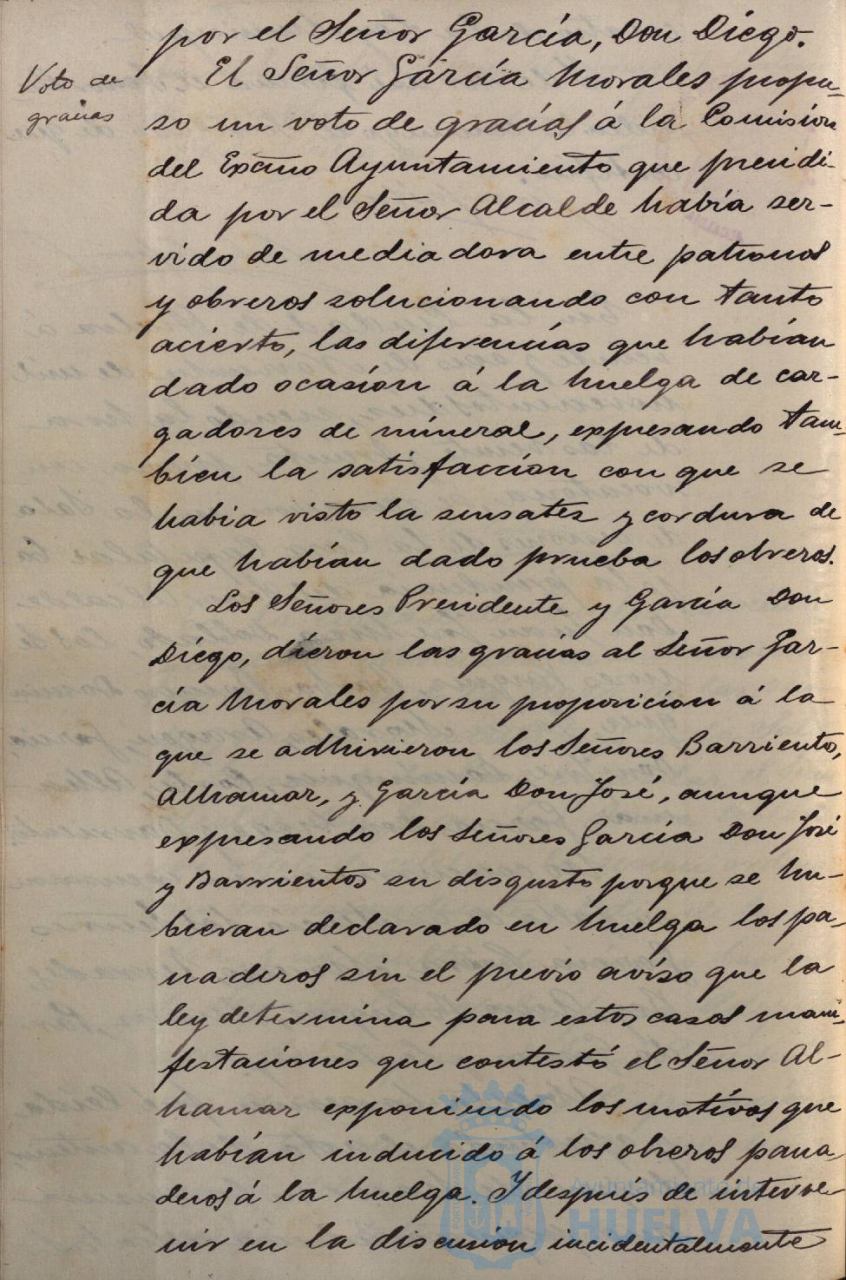 por el Señor García, Don Diego.
Voto de
gracias
El Señor García Morales propu-
so un voto de gracias á la Comisión
del Excmo Ayuntamiento que presidi-
da por el Señor Alcalde había ser-
vido de mediadora entre patronos
y obreros solucionando con tanto
acierto, las diferencias que habían
dado ocasión á la huelga de car-
gadores de mineral, expresando tam-
bien la satisfaccion con que se
habia visto la sensatez y cordura de
que habían dado prueba los obreros.
Los Señores Presidente y García Don
Diego, dieron las gracias al Señor Gar-
cía Morales por su proposicion á la
que se adhirieron los Señores Barriento,
Alhamar, y García Don José, aunque
expresando los Señores García Don José
y Barrientos su disgusto porque se hu-
bieran declarado en huelga los pa-
naderos sin el previo aviso que la
ley determina para estos casos mani-
festaciones que contestó el Señor Al-
hamar exponiendo los motivos que
habían inducido á los obreros pana-
deros á la huelga. Y después de interve-
nir en la discusión incidentalmente
Ayuntamiento de
HUELVA